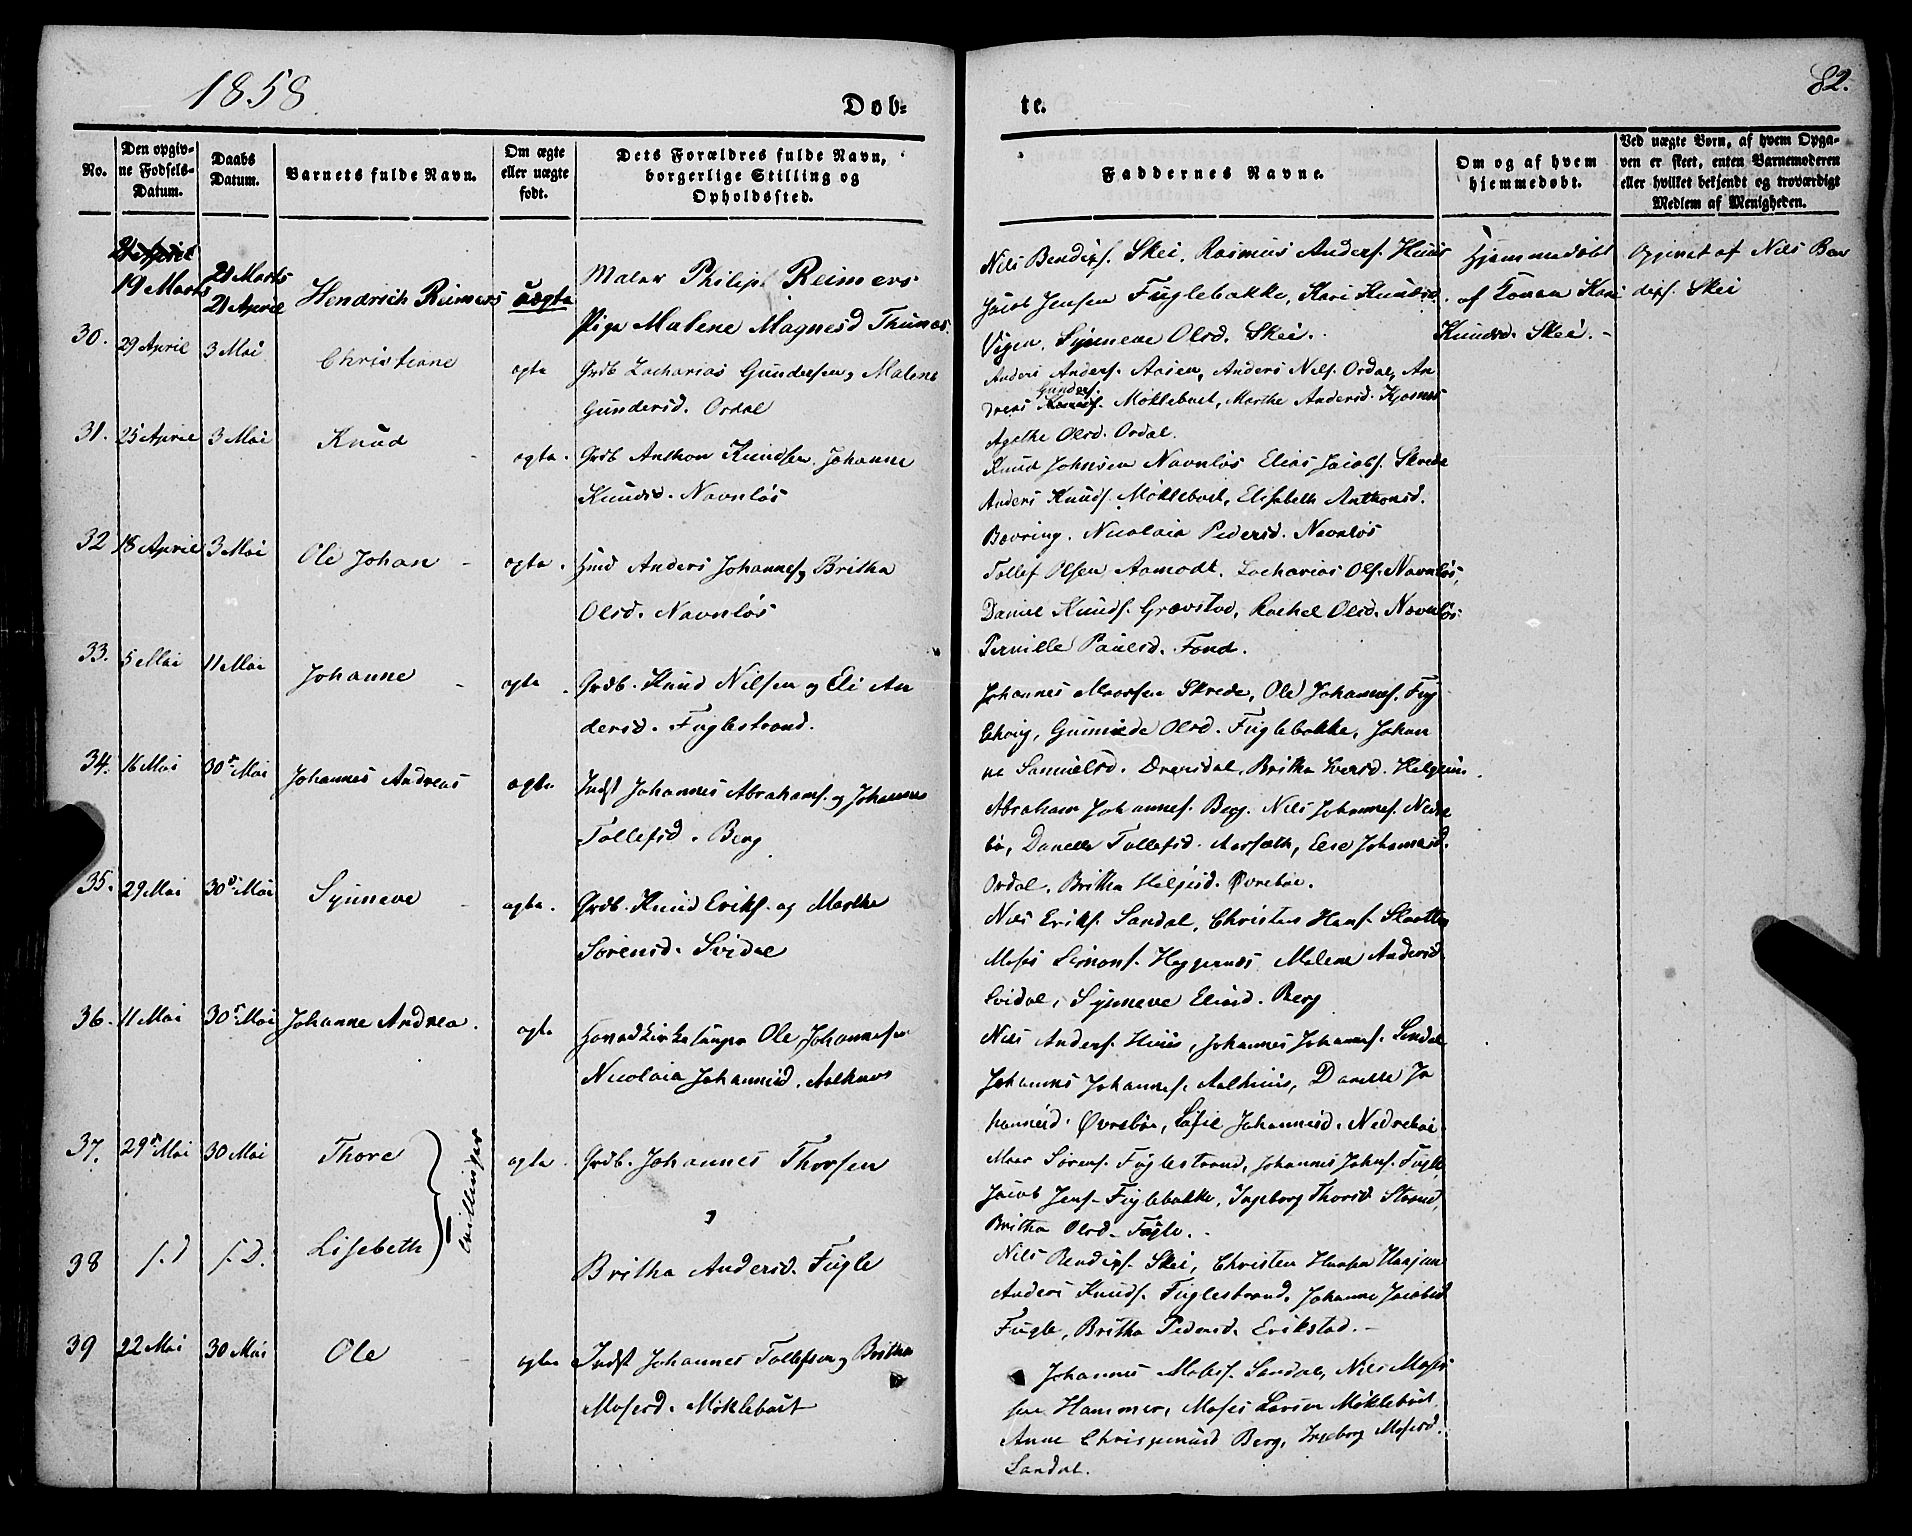 1858.
82.
Dob-
te.
No.
Den opgiv-
ne Fødsels-
Datum.
Daabs
Datum.
Barnets fulde Navn.
Om ægte
eller uægte
født.
Dets Forældres fulde Navn,
borgerlige Stilling og
Opholdssted.
Faddernes Navne.
Om og af hvem
hjemmedøbt.
Ved uægte Born, af hvem Opga-
ven er skeet, enten Barnemoderen
eller hvilket bekjendt og troværdigt
Medlem af Menigheden.
19 Marts
21 Marts
21 April
Hendrich Reimers
uægte
Maler Philip Reimers
Pige Malene Magnesd Thunes.
Nils Bendixs. Skei, Rasmus Anders. Huus
Jacob Jensen Fuglebakke, Kari Knudsd.
Vigen, Synneve Olsd. Skei.
Hjemmedøbt
af Konen Kari
Knudsd. Skei. -
Opgivet af Nils Ben
dixs. Skei
30.
29 April
3 Mai
Christiane
ægte
Grdb Zacharias Gundersen og Malene
Gundersd. Ordal
Anders Anders. Aasen, Anders Nils. Ordal, An
dreas Gunders. Møklebust, Marthe Andersd. Kjøsnes
Agethe Olsd. Ordal.
31.
25 April
3 Mai
Knud
ægte.
Grdb Anthon Knudsen Johanne
Knudsd. Navnløs
Knud Johnsen Navnløs Elias Jacobs. Skrede
Anders Knuds. Møklebust, Elisabeth Anthonsd.
Bøvring, Nicolaia Pedersd. Navnløs
32
18 April
3 Mai
Ole Johan
ægte.
Hmd Anders Johannes. og Britha
Olsd. Navnløs
Tollef Olsen Aamodt, Zacharias Ols. Navnløs,
Daniel Knuds. Grøvstad, Rachel Olsd. Navnløs
Pernille Paulsd. Fond.
33.
5 Mai
11 Mai
Johanne
ægte.
Grdb. Knud Nilsen og Eli An
dersd. Fuglestrand.
Johannes Andersen Skrede, Ole Johannes. Fug
lehoug, Gunnilde Olsd. Fuglebakke, Johan
ne Samuelsd. Dvergsdal, Britha Iversd. Helgeim.
34.
16 Mai
30 Mai
Johannes Andreas
ægte
Indst Johannes Abrahams. og Johanne
Tollefsd. Berg
Abraham Johannes. Berg, Nils Johannes. Nedre
bø, Danelle Tollefsd. Aarseth, Else Johannesd.
Ordal, Britha Helgesd. Øvrebøe.
35.
29 Mai
30 Mai
Synneve
ægte.
Grdb. Knud Eriks. og Marthe
Sørensd. Svidal
Nils Eriks. Sandal, Christen Hans. Slaatten
Moses Simons. Heggenæs Malene Andersd
Svidal, Synneve Eliasd. Berg
36.
11 Mai
30 Mai
Johanne Andrea.
ægte
Hovedkirkesanger Ole Johannesen
Nicolaia Johannesd. Aalhuus
Nils Anders. Huus, Johannes Johannes. Sandal
Johannes Johannes. Aalhuus, Danelle Jo
hannesd. Øvrebøe, Sofie Johannesd. Nedrebøe
37.
29 Mai
30 Mai
Thore
Tvillinger
ægte.
Grdb. Johannes Thorsen
Sørens. Fuglestrand, Johannes Johns. Fugle,
Jacob Jens. Fuglebakke, Ingeborg Thorsd. Strand,
Britha Olsd. Fugle.
38
s. D
s. D.
Lisebeth
og
Britha Andersd. Fugle
Nils Bendixs. Skei, Christen Hansen
Anders Knuds. Fuglestrand, Johanne Jacobsd
Fugle, Britha Pedersd. Erikstad. -
39
22 Mai
30 Mai
Ole
ægte
Indst Johannes Tollefsen og Britha
Mosesd. Møklebust
Johannes Moses. Sandal, Nils Moses
sen Hammer, Moses Larsen Møklebust
Anne Berg, Ingeborg Mosesd.
Sandal.